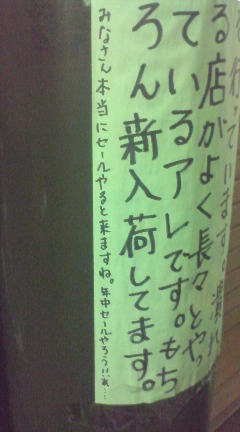 行っています。潰れ
る店がよく長々とやっ
ているアレです。もち
ろん新入荷してます。
みなさん本当にセールやると来ますね。年中セールやろうかな…